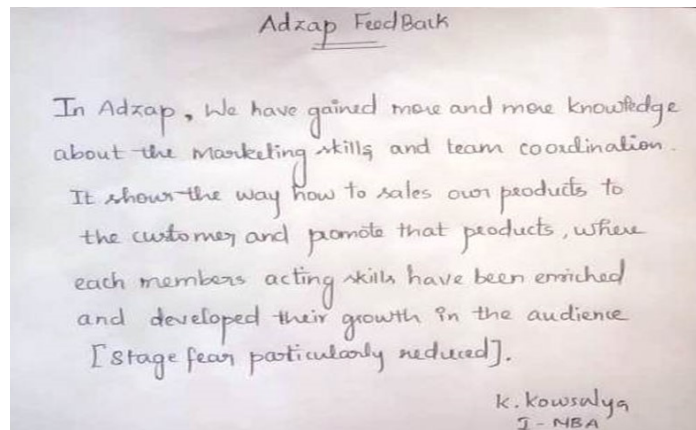 Adzap FeedBack
In Adzap, We have gained more and more knowledge
about the marketing skills and team coordination.
It shows the way how to sales our products to
the customer and promote that products, where
each members acting skills have been enriched
and developed their growth in the audience
[stage fear particularly reduced].
K. Kowsalya
I - MBA